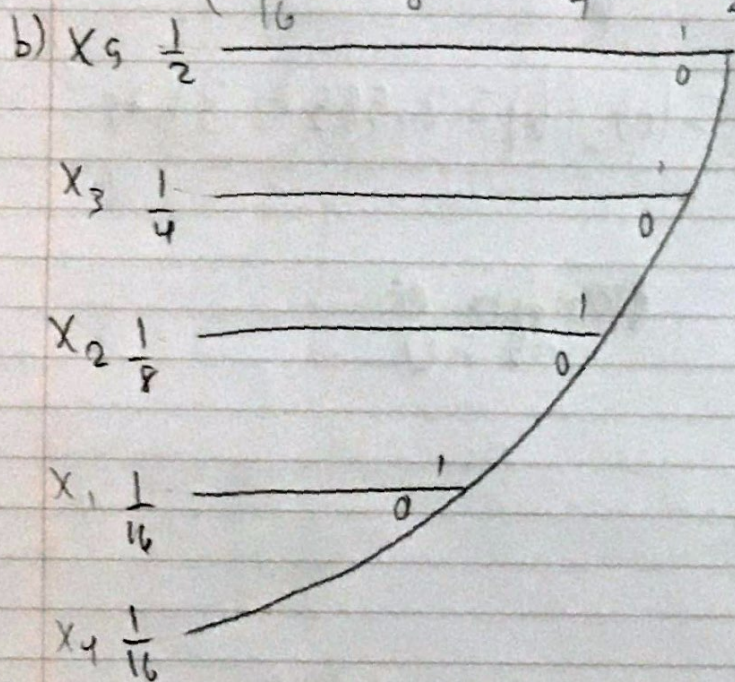 16
b) X5 1/2 1
0
X3 1/4 1
0
X2 1/8 1
0
X1 1/16 1
0
X4 1/16